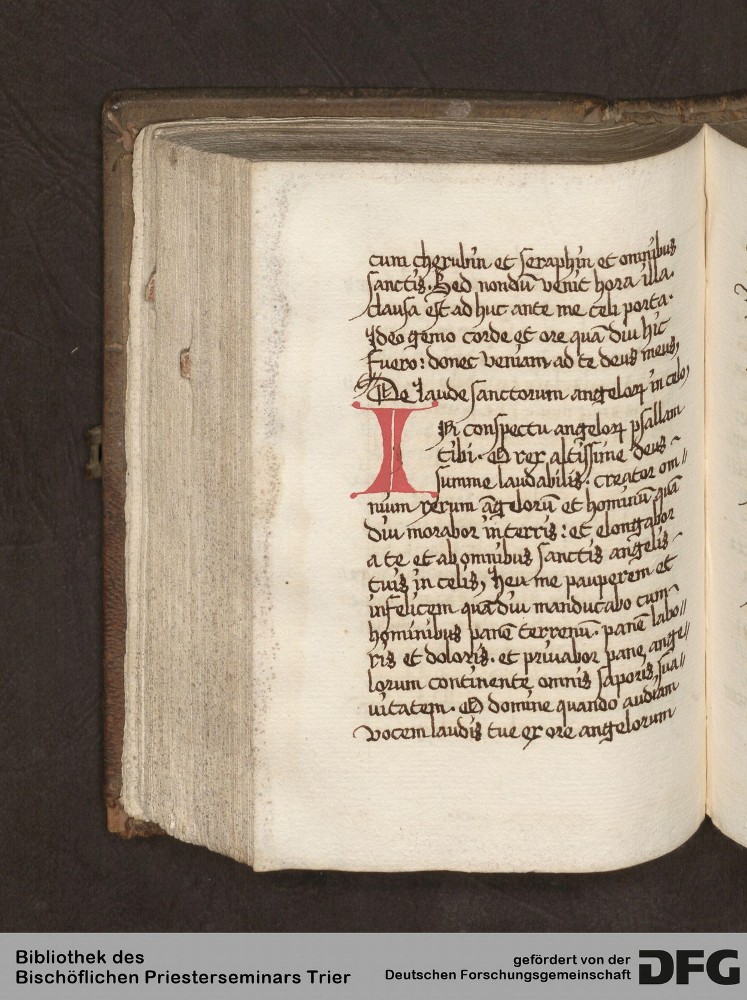 cum cherubin et seraphin et omnibus
sanctis. Sed nondū venit hora illa.
clausa est adhuc ante me celi porta.
Ideo gemo corde et ore quā diu hic
fuero: donec veniam ad te deus meus,
De laude sanctorum angelorꝝ in celo,
IN conspectu angelorꝝ psallam
tibi. O rex altissime deus
summe laudabilis. creator om〃
nium rerum āgelorū et hominū quā
diu morabor in terris: et elongabor
a te et ab omnibus sanctis angelis
tuis in celis, Heu me pauperem et
infelicem quā diu manducabo cum
hominibus panē terrenū. panē labo〃
ris et doloris. et privabor pane ange〃
lorum continente omnis saporis sua〃
vitatem. O domine quando audiam
vocem laudis tue ex ore angelorum
Bibliothek des
Bischöflichen Priesterseminars Trier
gefördert von der
Deutschen Forschungsgemeinschaft
DFG